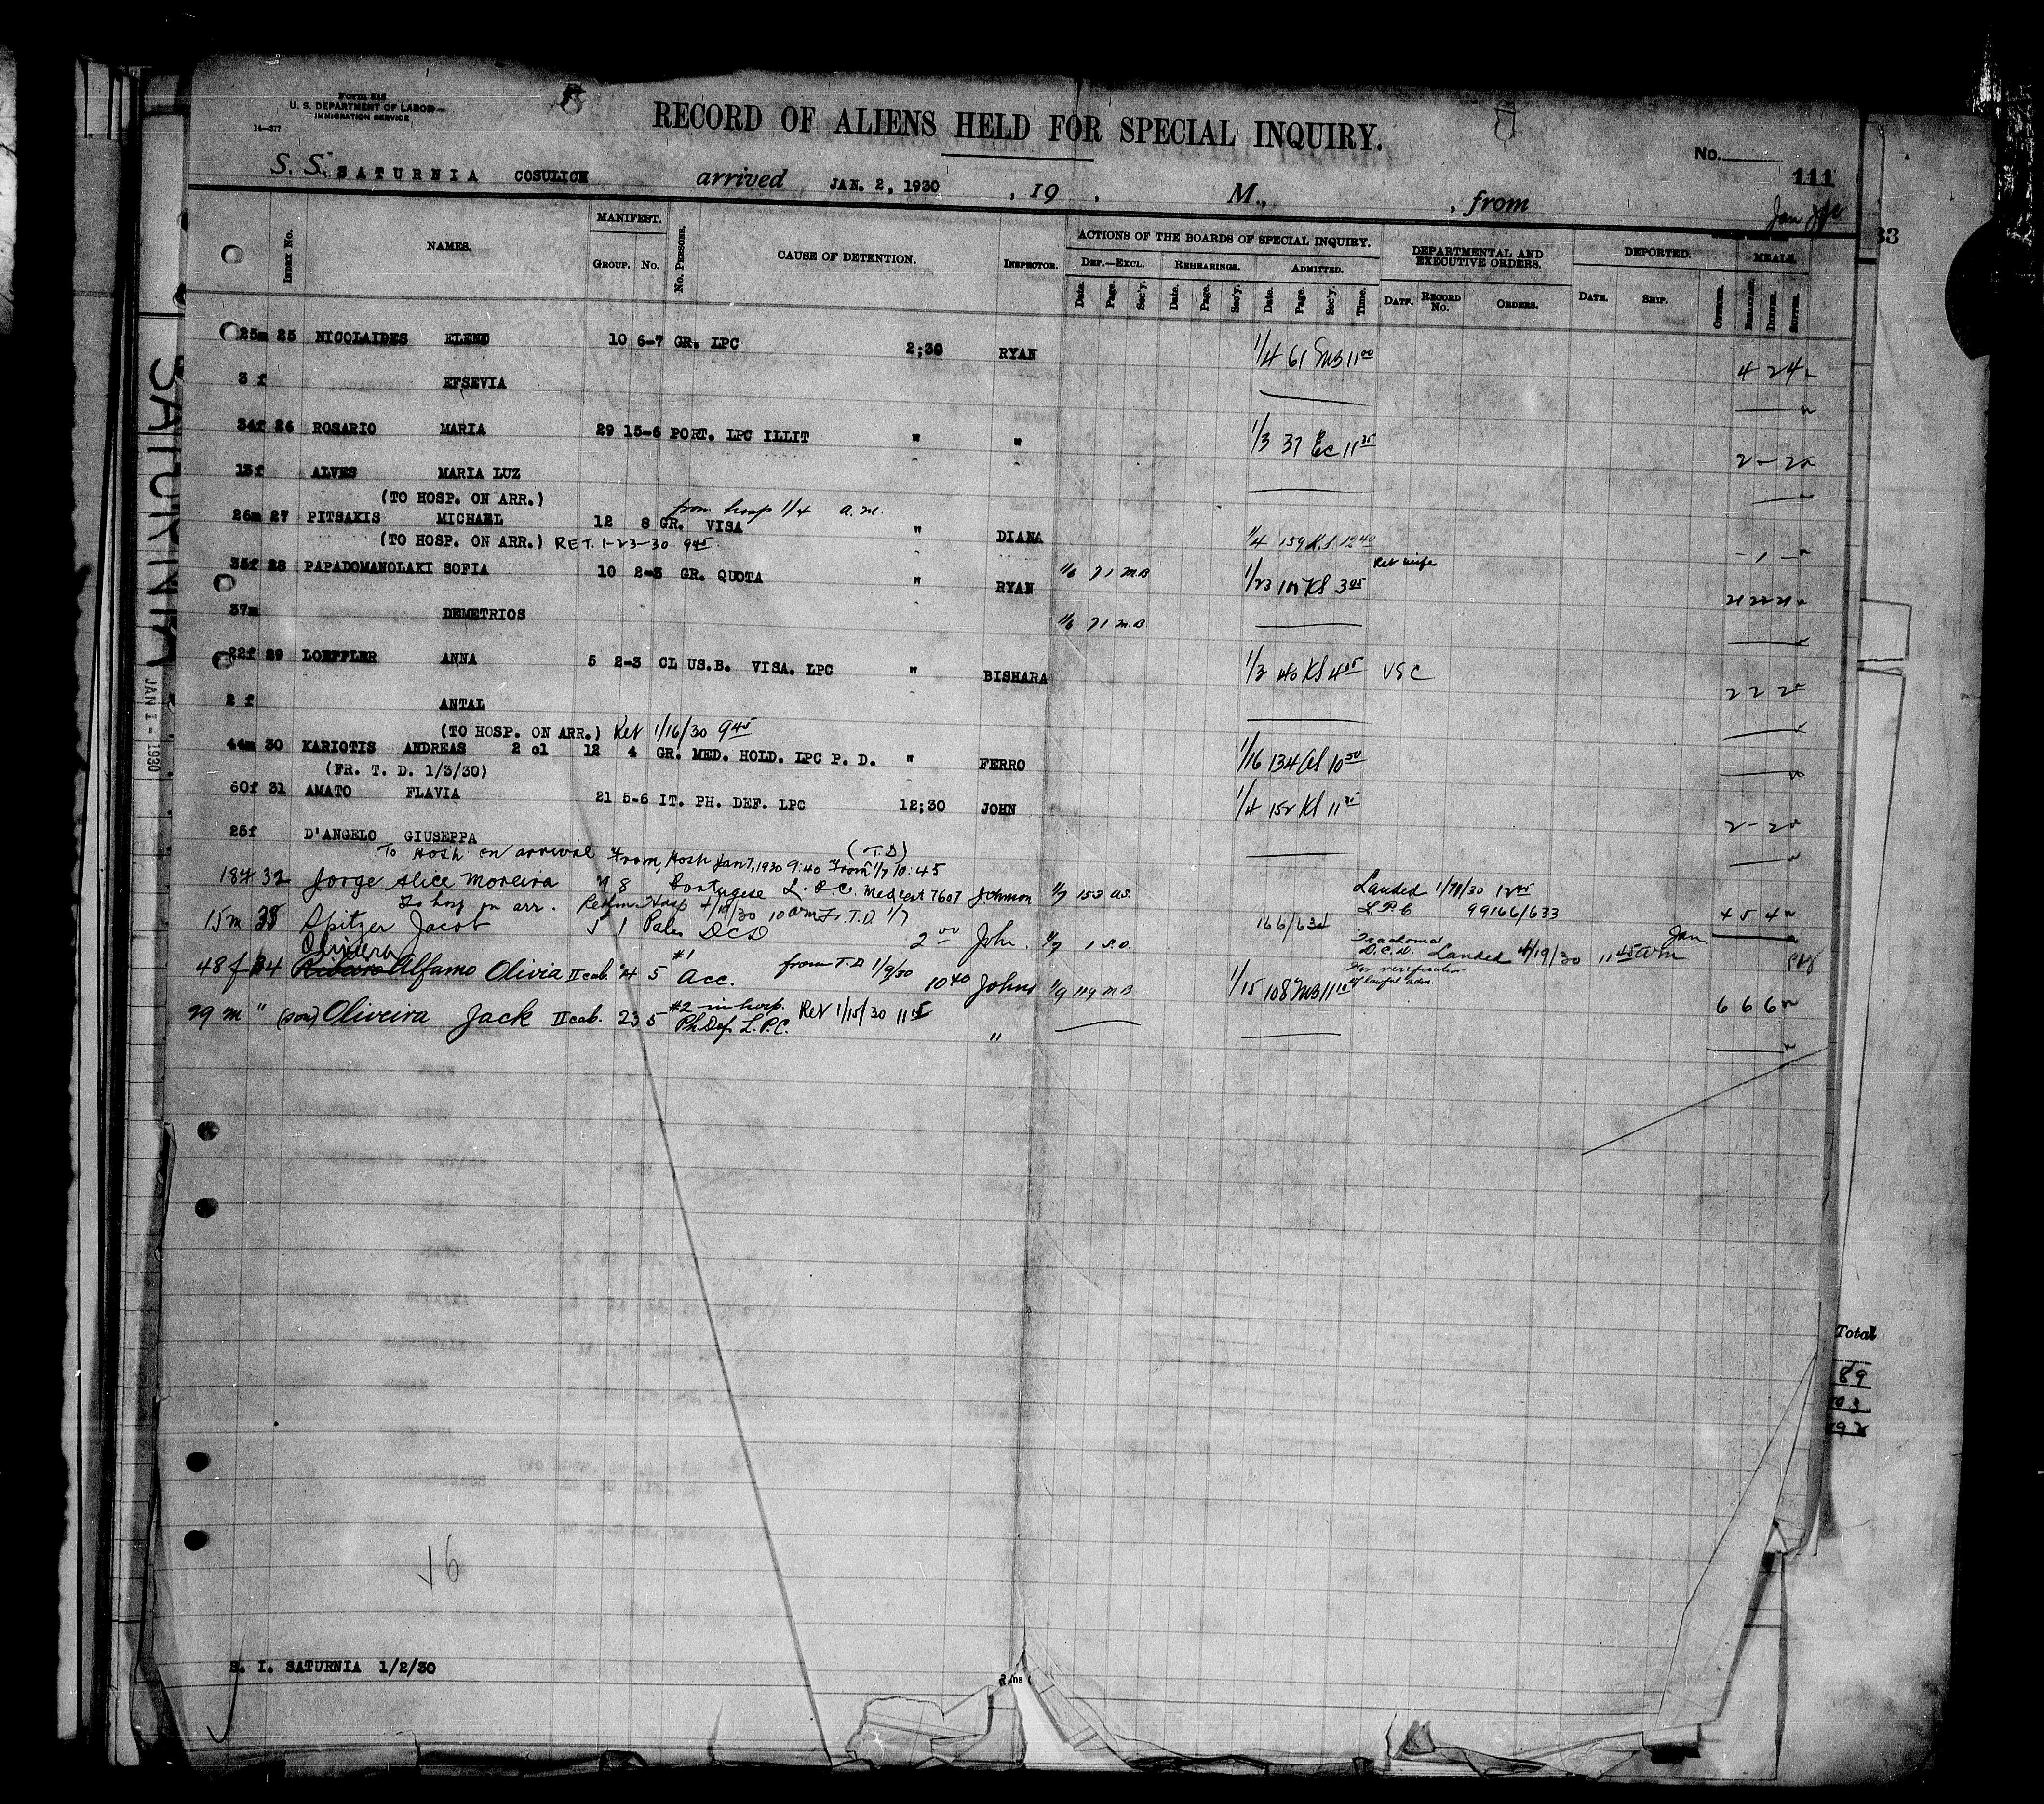 Form 515
U. S. DEPARTMENT OF LABOR
IMMIGRATION SERVICE
14—377
RECORD OF ALIENS HELD FOR SPECIAL INQUIRY.
No.
111
S. S. SATURNIA COSULICH arrived JAN. 2, 1930 , 19 , M., , from
33
INDEX No. NAMES. MANIFEST. GROUP. No. No. PERSONS. CAUSE OF DETENTION. INSPECTOR. ACTIONS OF THE BOARDS OF SPECIAL INQUIRY. DEF.—EXCL. Date. Page. Sec'y. REHEARINGS. Date. Page. Sec'y. ADMITTED. Date. Page. Sec'y. Time. DEPARTMENTAL AND EXECUTIVE ORDERS. DATE. RECORD No. ORDERS. DEPORTED. DATE. SHIP. MEALS. BREAKFAST. DINNER. SUPPER.
25m 25 NICOLAIDES ELENE 10 6-7 GR. LPC 2;30 RYAN 1/4 61 11 00 4 2 4
3 f EFSEVIA
34f 26 ROSARIO MARIA 29 15-6 PORT. LPC ILLIT " " 1/3 37 Ec 11 35 2 - 2
13f ALVES MARIA LUZ
(TO HOSP. ON ARR.) from hosp 1/4 a.m.
26m 27 PITSAKIS MICHAEL 12 8 GR. VISA " DIANA 1/4 159 K.S. 12 40 - 1 -
(TO HOSP. ON ARR.) RET. 1-23-30 9 45
35f 28 PAPADOMANOLAKI SOFIA 10 2-3 GR. QUOTA " RYAN 1/6 71 M.B 1/23 KS 3 05 Ret wife 21 22 21
37m DEMETRIOS 1/6 71 M.B
22f 29 LOEFFLER ANNA 5 2-3 CL US.B. VISA. LPC " BISHARA 1/3 40 KS 4 05 VSC 2 2 2
2 f ANTAL
(TO HOSP. ON ARR.) Ret 1/16/30 9 45
44m 30 KARIOTIS ANDREAS 2 cl 12 4 GR. MED. HOLD. LPC P. D. " FERRO 1/16 134 10 50
(FR. T. D. 1/3/30)
60f 31 AMATO FLAVIA 21 5-6 IT. PH. DEF. LPC 12;30 JOHN 1/4 152 KS 11 35 2 - 2
25f D'ANGELO GIUSEPPA
To Hosp. on arrival From Hosp Jan 7, 1930 9:40 From (T.D) 1/7 10:45
18f 32 Jorge Alice Moreira 8 Portugese L.P.C. Med cert 7607 Johnson 1/7 153 Landed 1/ /30 12 45
To hosp on arr. Ret fm Hosp 4/19/30 10 am Fr. T.D. 1/7 L.P.C 99166/633 4 5 4
15m 33 Spitzer Jacob 5 1 Pales DCD 2 00 John. 1/7 1 166/634 Trachoma
D.C.D. Landed 4/19/30 11 45 am
Oliveira
48f 34 Alfamo Olivia II cab. 5 #1 Acc. from T.D 1/9/30 10 40 Johns 1/9 119 M.B 1/15 108 11 10 For verification of lawful adm. 6 6 6
29 m " (son) Oliveira Jack II cab. 23 5 #2 in hosp. Ret 1/15/30 11 15
Ph. Def L.P.C. "
Total
89
16
S. I. SATURNIA 1/2/30
SATURNIA
JAN 1 - 1930